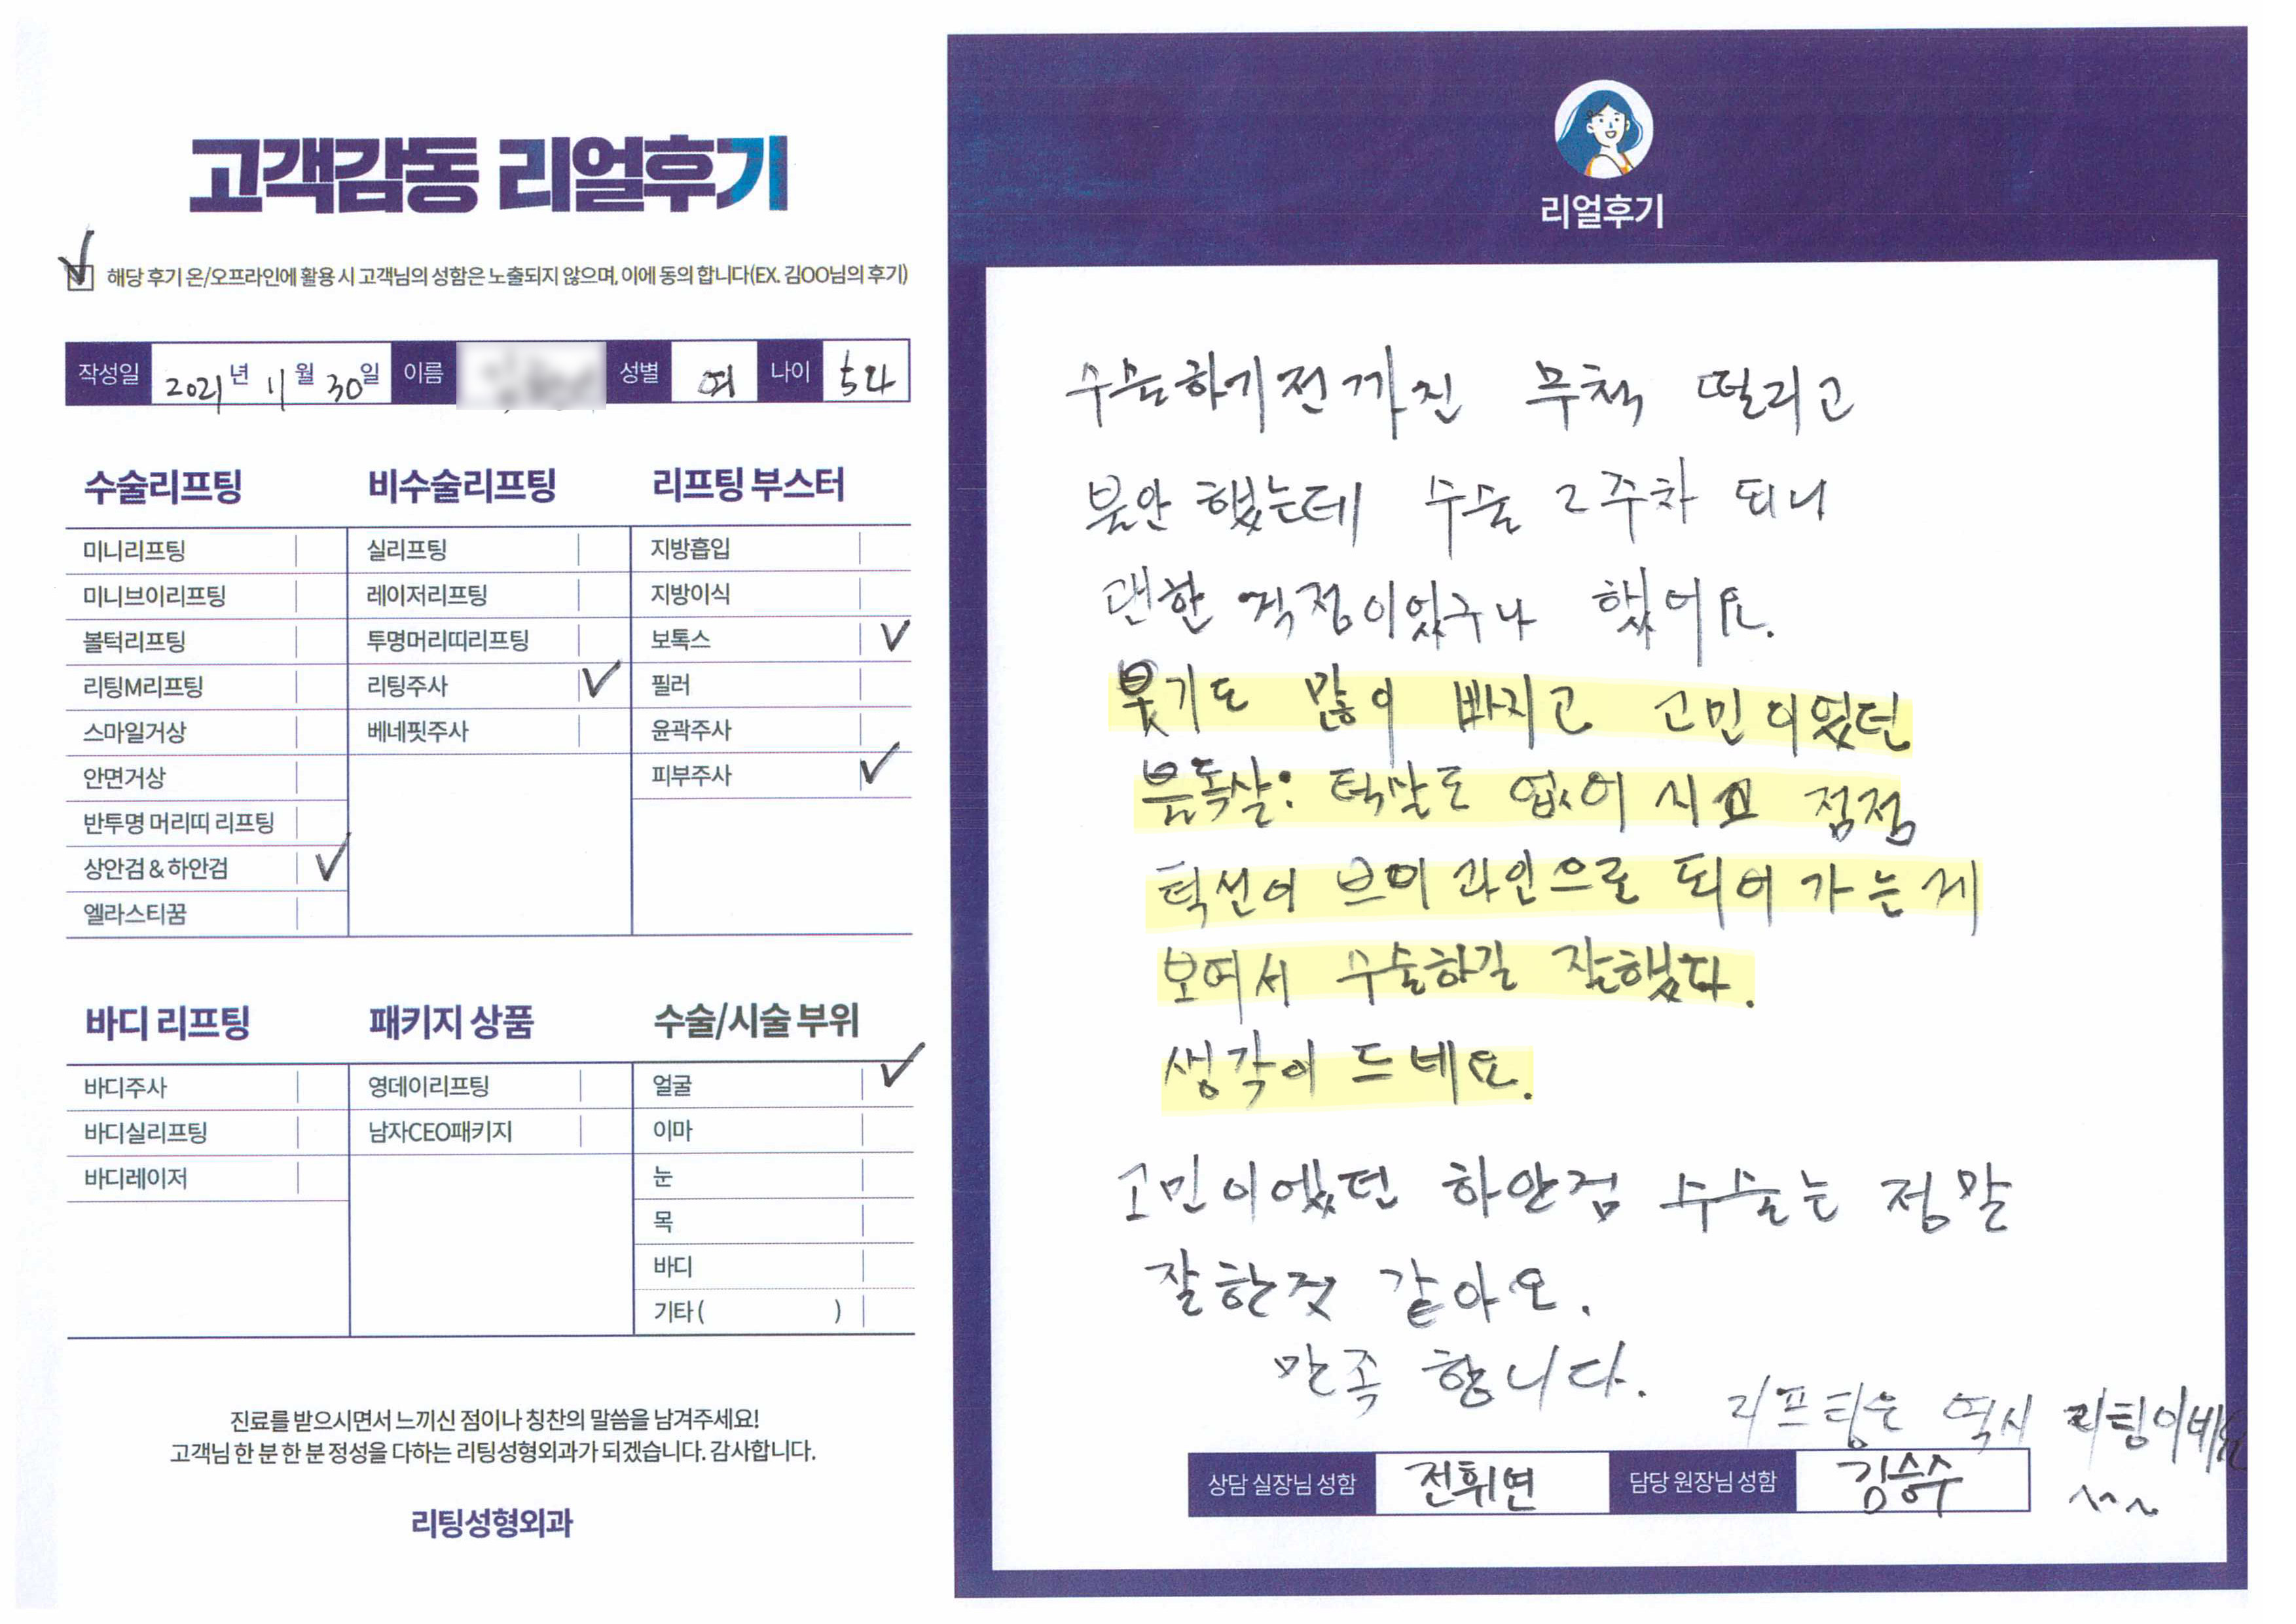 고객감동 리얼후기
해당 후기 온/오프라인에 활용 시 고객님의 성함은 노출되지 않으며, 이에 동의 합니다(EX. 김OO님의 후기)
작성일 2021년 11월 30일 이름 성별 여 나이
수술리프팅 비수술리프팅 리프팅 부스터
미니리프팅 실리프팅 지방흡입
미니브이리프팅 레이저리프팅 지방이식
볼턱리프팅 투명머리띠리프팅 보톡스 ✓
리팅M리프팅 리팅주사 ✓ 필러
스마일거상 베네핏주사 윤곽주사
안면거상 피부주사 ✓
반투명 머리띠 리프팅
상안검 & 하안검 ✓
엘라스티꿈
바디 리프팅 패키지 상품 수술/시술 부위
바디주사 영데이리프팅 얼굴 ✓
바디실리프팅 남자CEO패키지 이마
바디레이저 눈
목
바디
기타 ( )
진료를 받으시면서 느끼신 점이나 칭찬의 말씀을 남겨주세요!
고객님 한 분 한 분 정성을 다하는 리팅성형외과가 되겠습니다. 감사합니다.
리팅성형외과
리얼후기
수술하기전까진 무척 떨리고
불안 했는데 수술 2주차 되니
괜한 걱정이었구나 했어요.
붓기도 많이 빠지고 고민이었던
턱살도 없어 점점
턱선이 브이라인으로 되어 가는게
보여서 수술하길 잘했다.
생각이 드네요.
고민이엤던 하안검 수술는 정말
잘한것 같아요.
만족 합니다.
리프팅은 역시 리팅이네요
상담 실장님 성함 전휘연 담당 원장님 성함 김승수